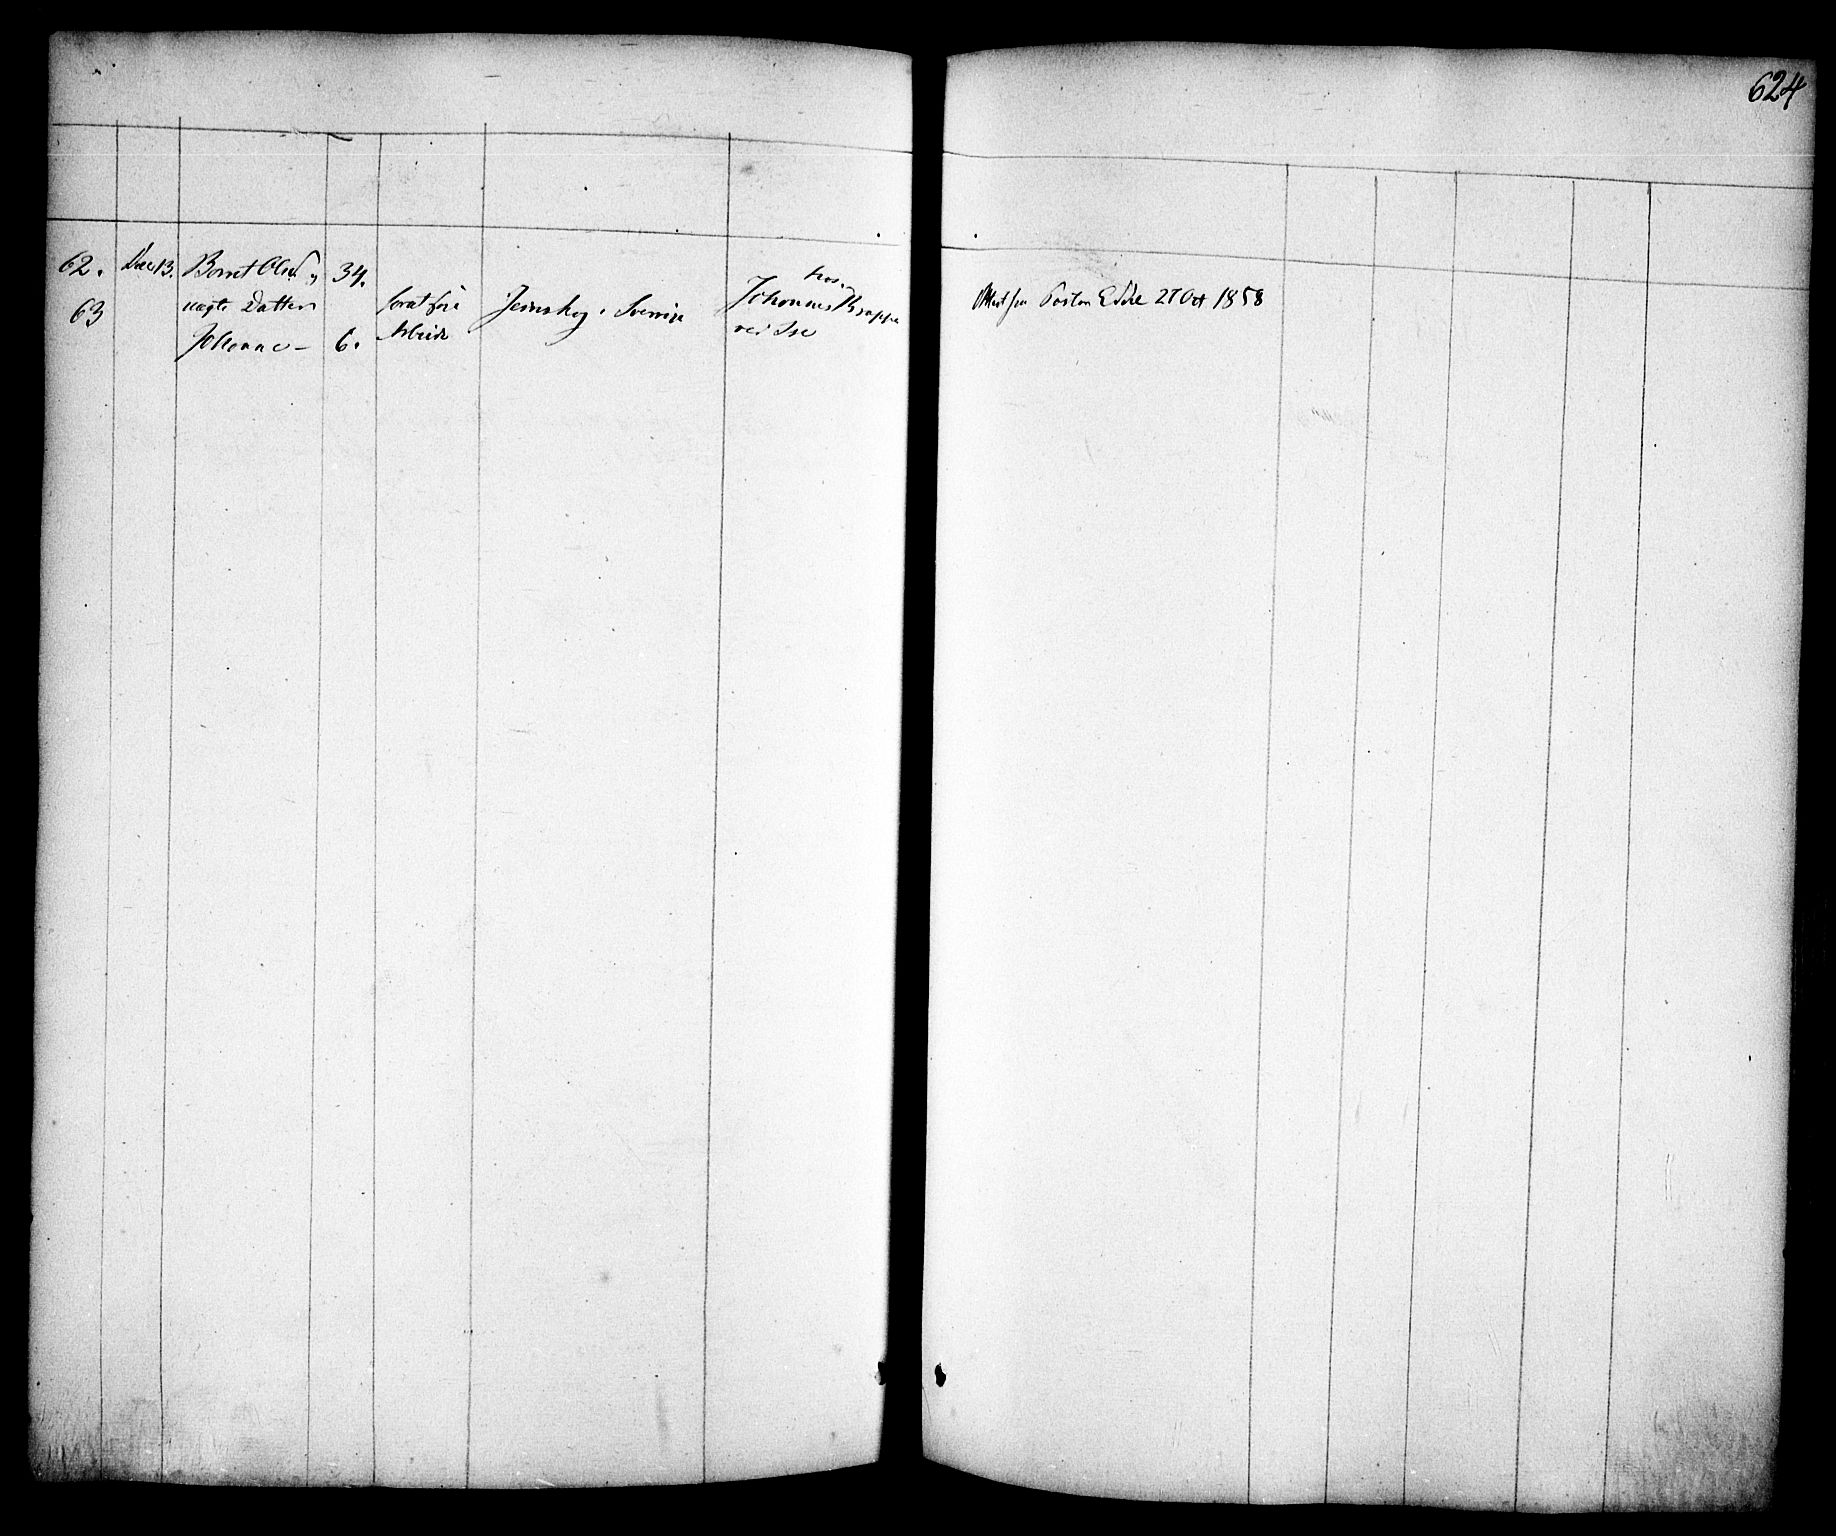 624
62. Dec 13. Bernt Olsd. og 34.
63 uægte Datter
Johanne — 6.
for at söge
Arbeide
Jernskog i Sverrige
hos
Johannes Brappe
ved Ise
Attest fra Pastor Edde 27 Oct 1858